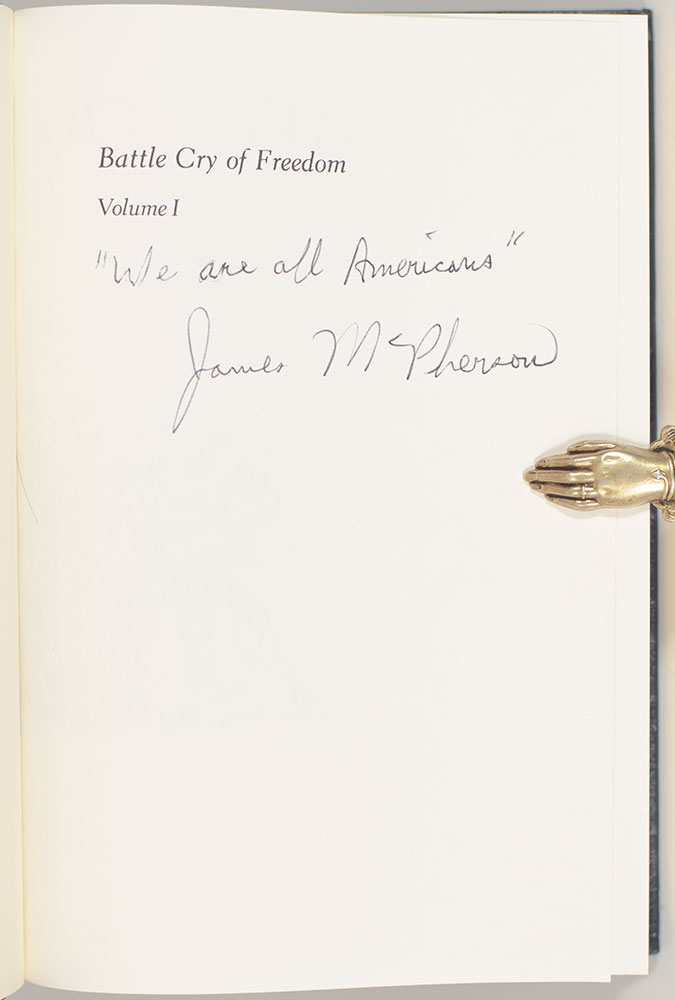 Battle Cry of Freedom
Volume I
"We are all Americans"
James McPherson